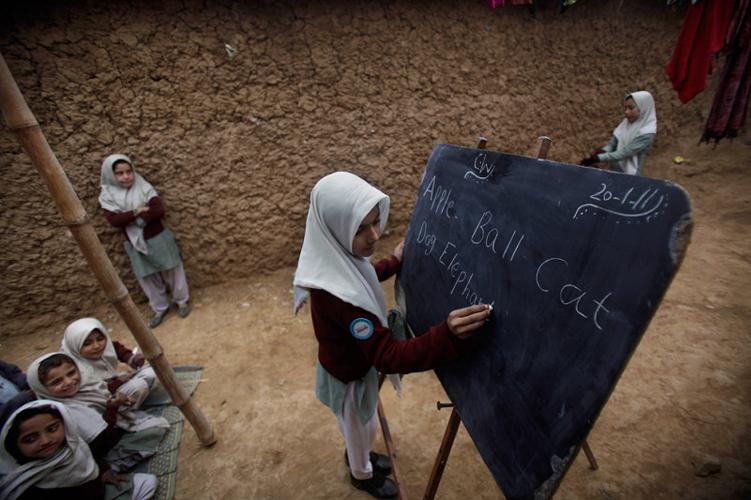 C/W.
20-1-11
Apple. Ball Cat
Dog Elephan